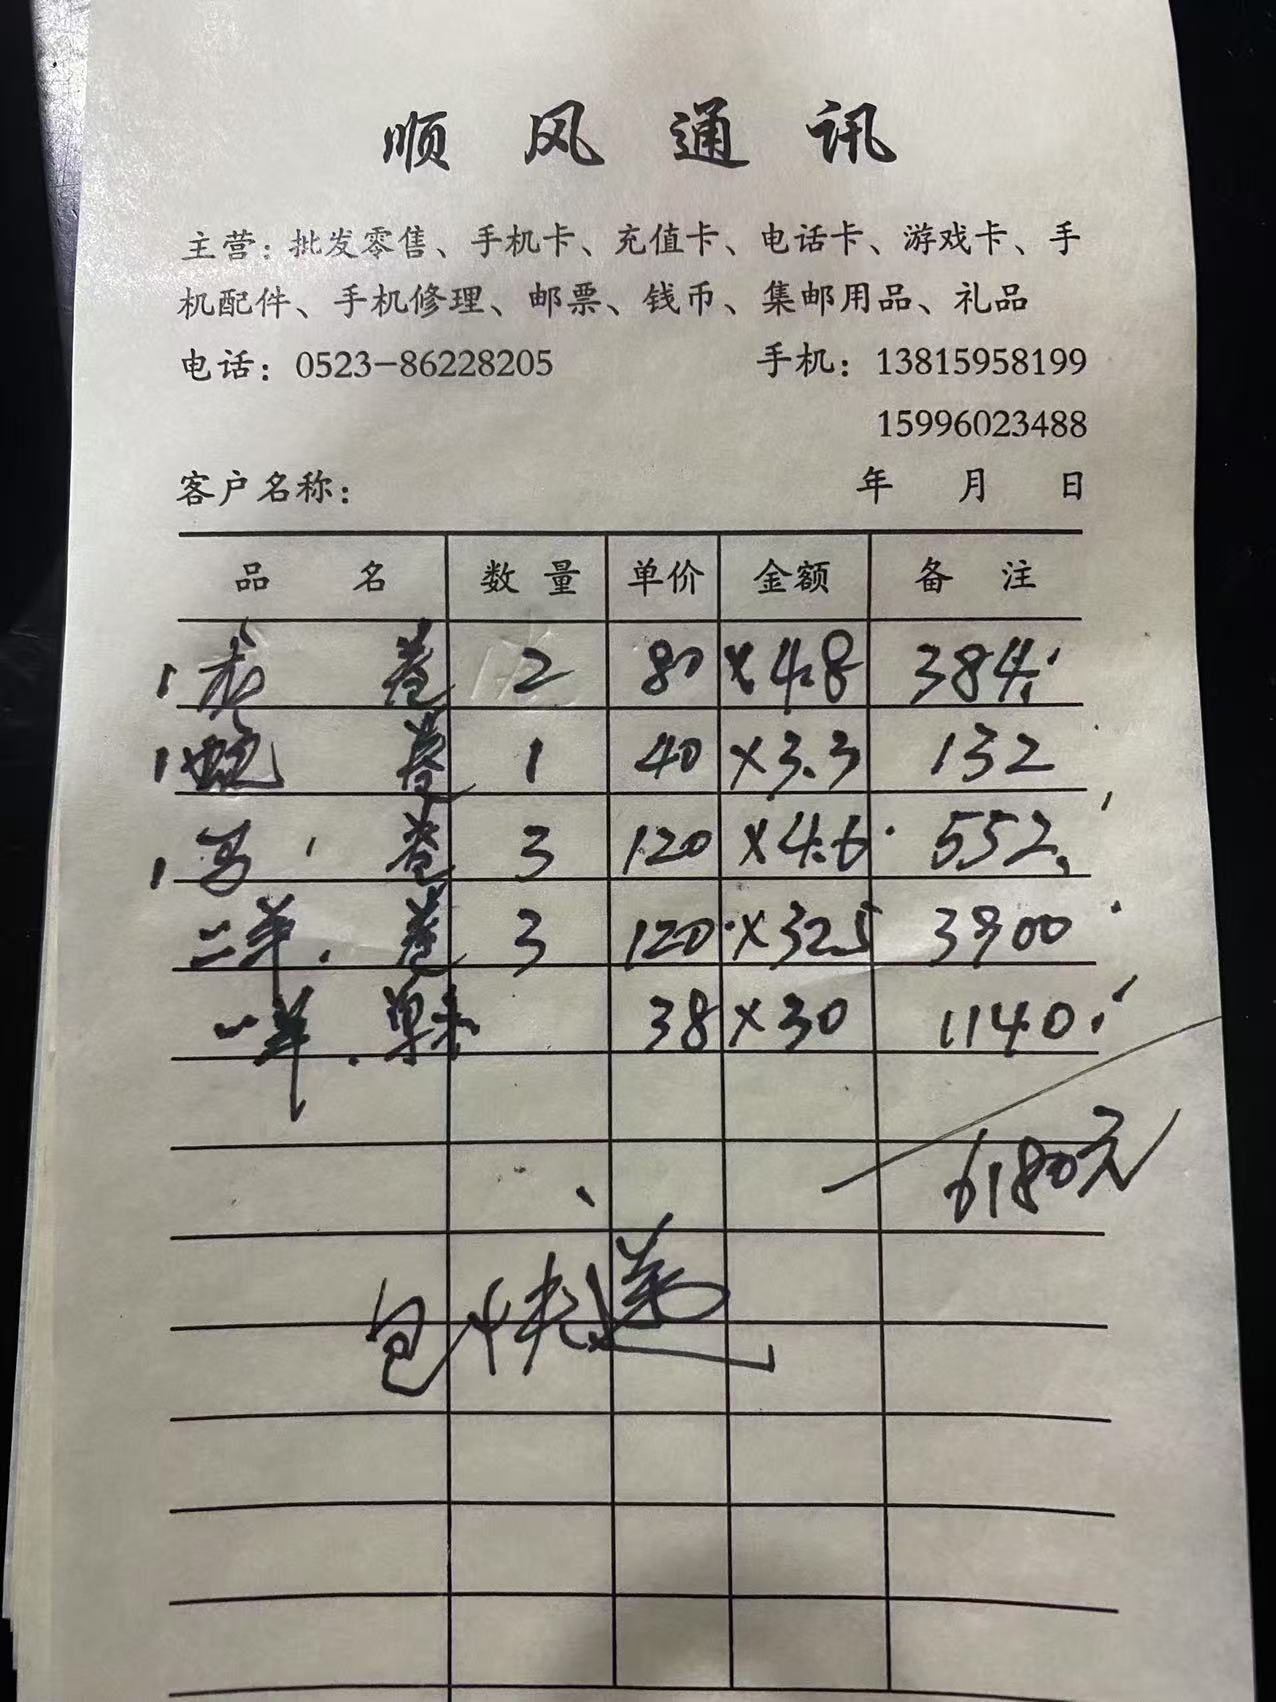 顺风通讯
主营：批发零售、手机卡、充值卡、电话卡、游戏卡、手
机配件、手机修理、邮票、钱币、集邮用品、礼品
电话：0523-86228205 手机：13815958199
15996023488
客户名称： 年 月 日
品 名 数 量 单价 金额 备 注
卷 2 80 ×4.8 384
1蛇 卷 1 40 ×3.3 132
1马 卷 3 120 ×4.6 552
二羊. 卷 3 120 ×32.5 3900
一羊. 单 38 ×30 1140
6180元
包快递